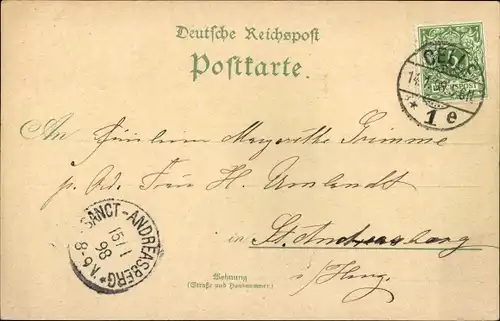 Deutsche Reichspost
Postkarte.
CELLE
14.1.98
* 1 e
An Fräulein Margarethe Grimme
p. Ad. Frau H. Umlandt
in St. Andreasberg
i/Harz.
SANCT-ANDREASBERG
15/1
98
*
Wohnung
(Straße und Hausnummer)